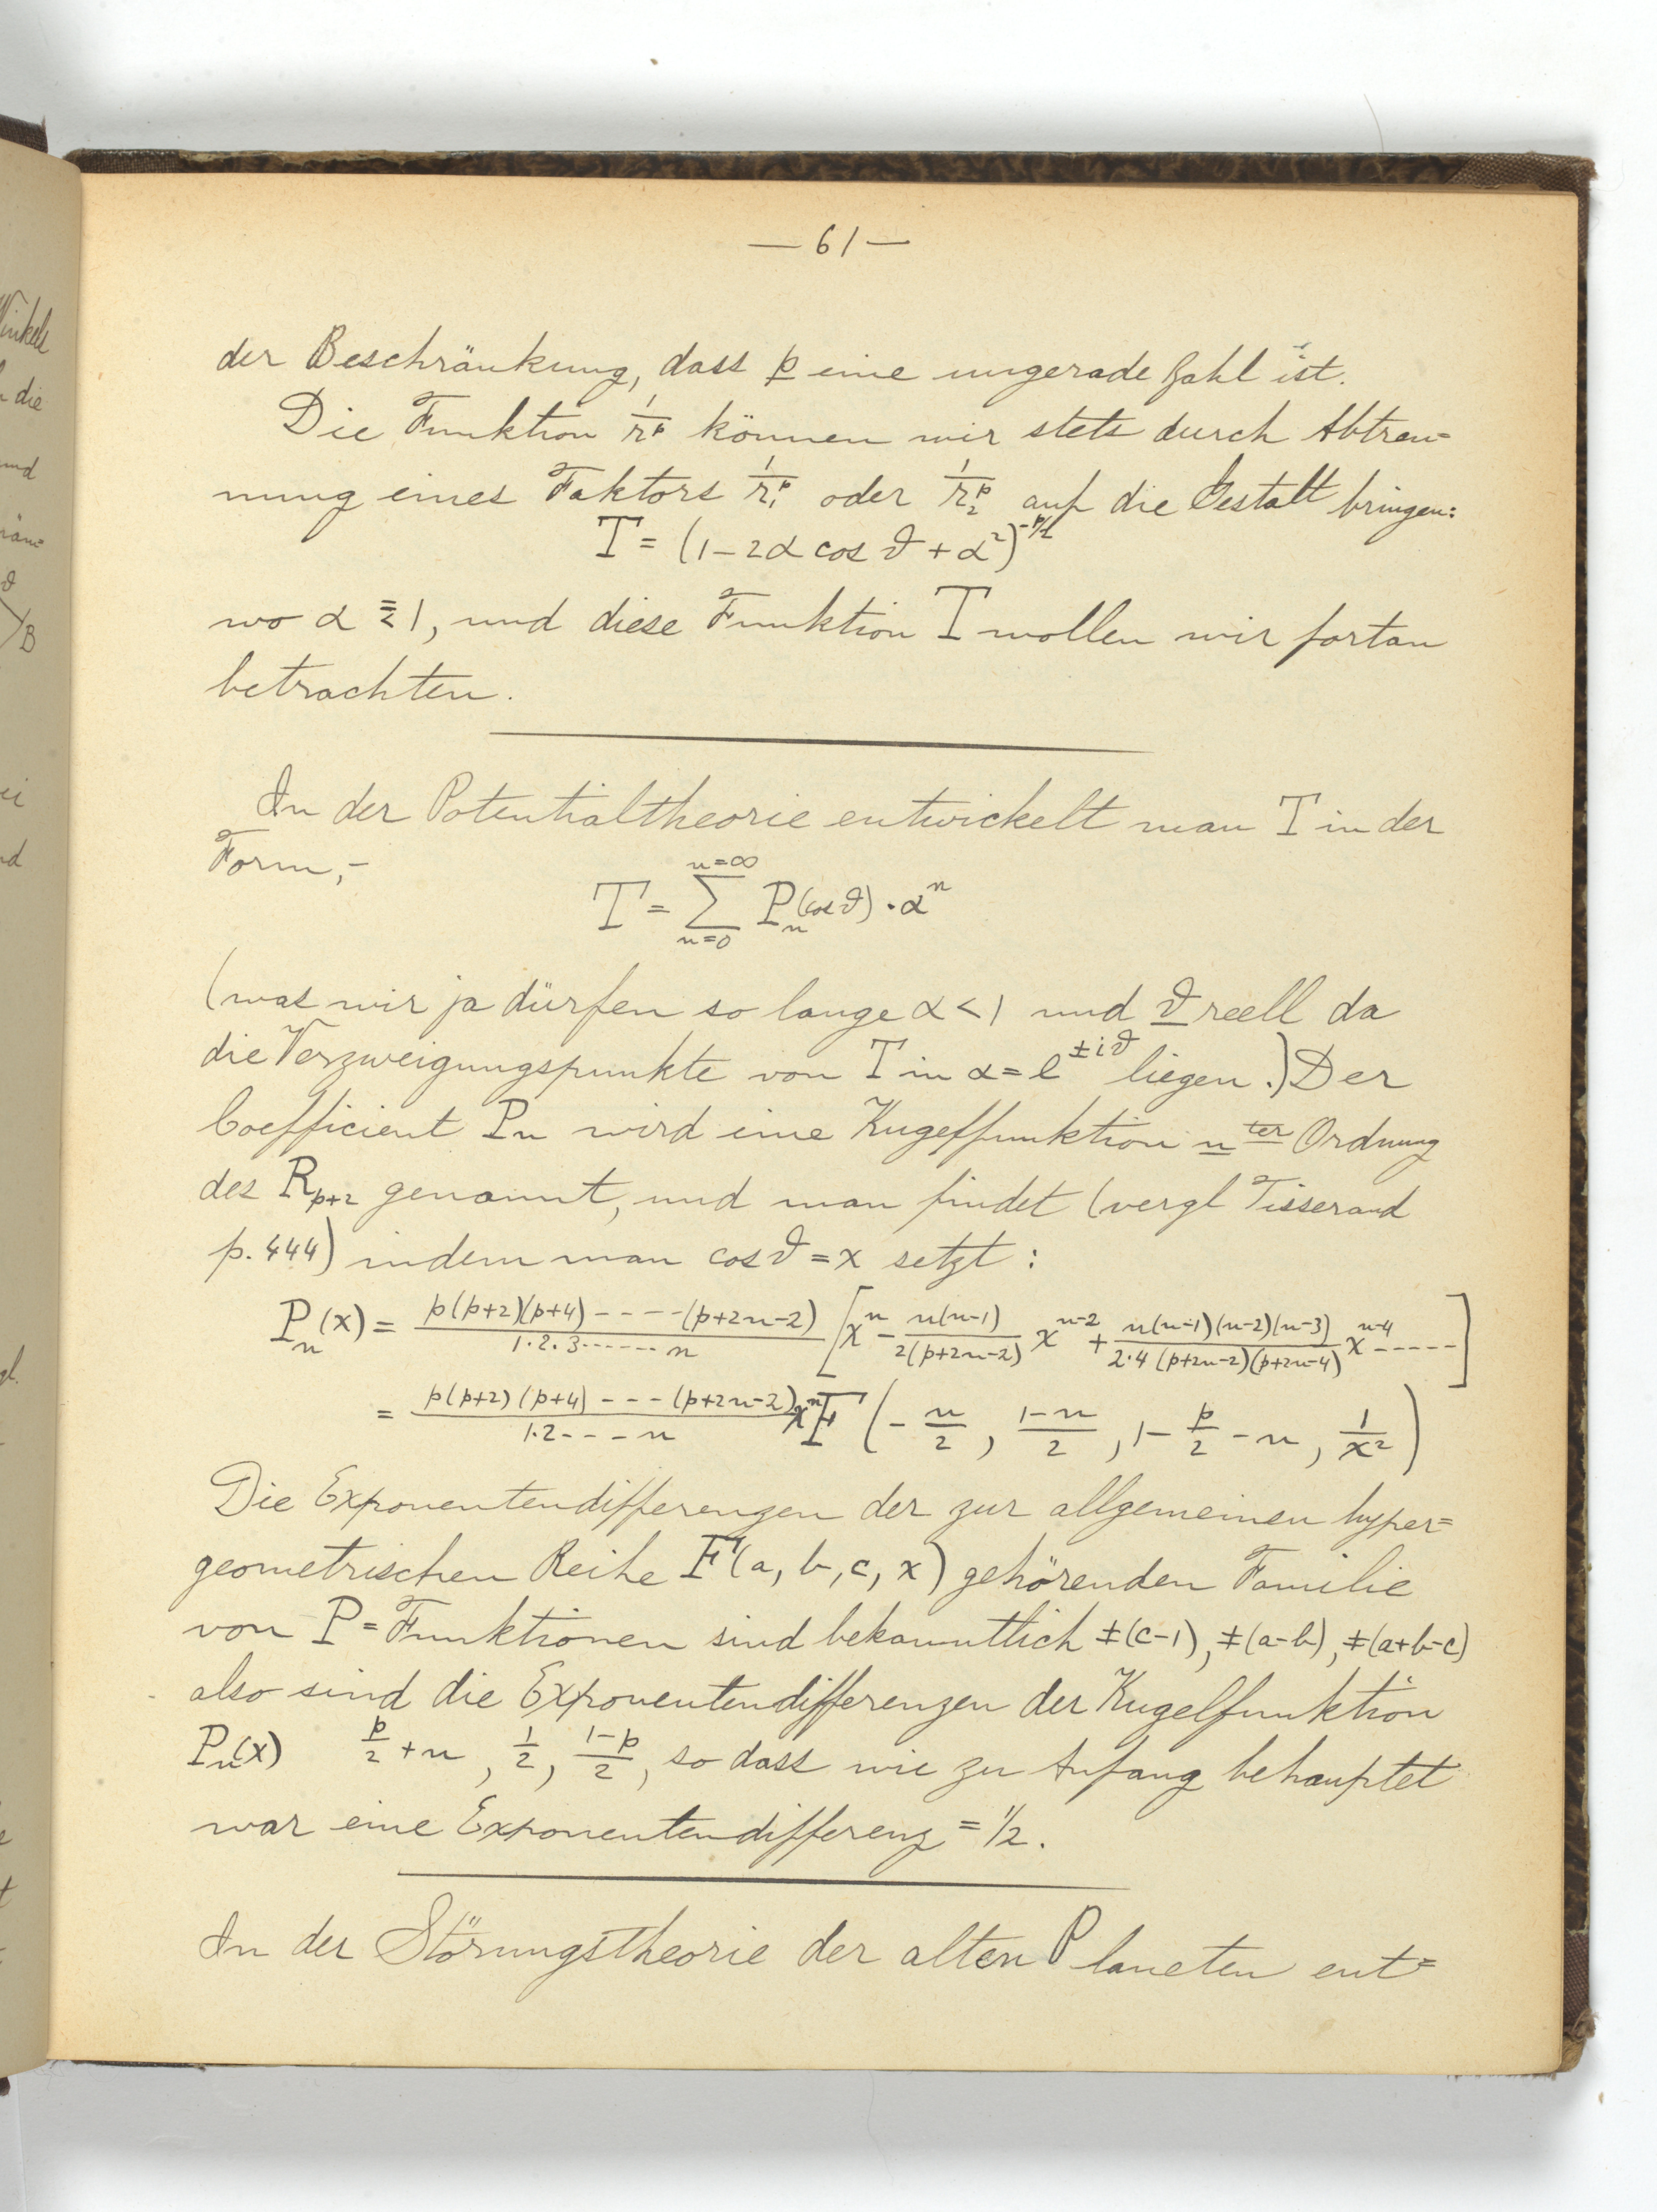 — 61 —
der Beschränkung, dass p eine ungerade Zahl ist.
Die Funktion 1/r^p können wir stets durch Abtren=
nung eines Faktors 1/r_1^p oder 1/r_2^p auf die Gestalt bringen:
T = (1 - 2α cos ϑ + α²)^{-p/2}
wo α ≦ 1, und diese Funktion T wollen wir fortan
betrachten.
In der Potentialtheorie entwickelt man T in der
Form,-
T = Σ_{n=0}^{n=∞} P_n(cos ϑ) · α^n
(was wir ja dürfen so lange α < 1 und ϑ reell da
die Verzweigungspunkte von T in α = e^{±iϑ} liegen.) Der
Coefficient P_n wird eine Kugelfunktion n^ter Ordnung
des R_{p+2} genannt, und man findet (vergl Tisserand
p. 444) indem man cos ϑ = x setzt:
P_n(x) = p(p+2)(p+4)-----(p+2n-2) / 1·2·3······n [x^n - n(n-1) / 2(p+2n-2) x^{n-2} + n(n-1)(n-2)(n-3) / 2·4(p+2n-2)(p+2n-4) x^{n-4} -----]
= p(p+2)(p+4)---(p+2n-2) / 1·2---n x^n F(-n/2, 1-n/2, 1-p/2-n, 1/x²)
Die Exponentendifferenzen der zur allgemeinen hyper=
geometrischen Reihe F(a, b, c, x) gehörenden Familie
von P=Funktionen sind bekanntlich ±(c-1), ±(a-b), ±(a+b-c)
also sind die Exponentendifferenzen der Kugelfunktion
P_n(x) p/2 + n, 1/2, 1-p/2, so dass wie zu Anfang behauptet
war eine Exponentendifferenz = 1/2.
In der Störungstheorie der alten Planeten ent=